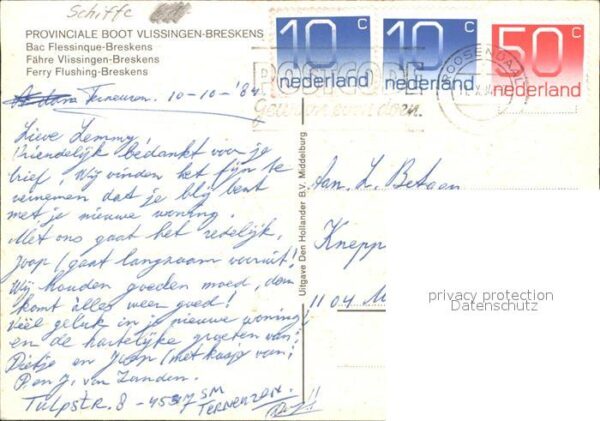 Schiffe
PROVINCIALE BOOT VLISSINGEN-BRESKENS
Bac Flessinque-Breskens
Fähre Vlissingen-Breskens
Ferry Flushing-Breskens
10 c nederland
10 c nederland
50 c nederland
POSTCODE
Gewoon even doen.
ROOSENDAAL
Terneuzen. 10-10-'84
Lieve Lemmy,
Vriendelijk bedankt voor je
brief, Wij vinden het fijn te
vernemen dat je blij bent
met je nieuwe woning.
Met ons gaat het redelijk,
Joop (gaat langzaam vooruit!
Wij houden goeden moed, dan
komt alles weer goed!
Veel geluk in je nieuwe woning
en de hartelijke groeten van;
Pietje en Joop (met kaap van;
v. Zanden.
Tulpstr. 8 - 4537 SM
TERNEUZEN.
Uitgave Den Hollander B.V. Middelburg
Aan L. Betaen
Knepp
1104 M
privacy protection
Datenschutz